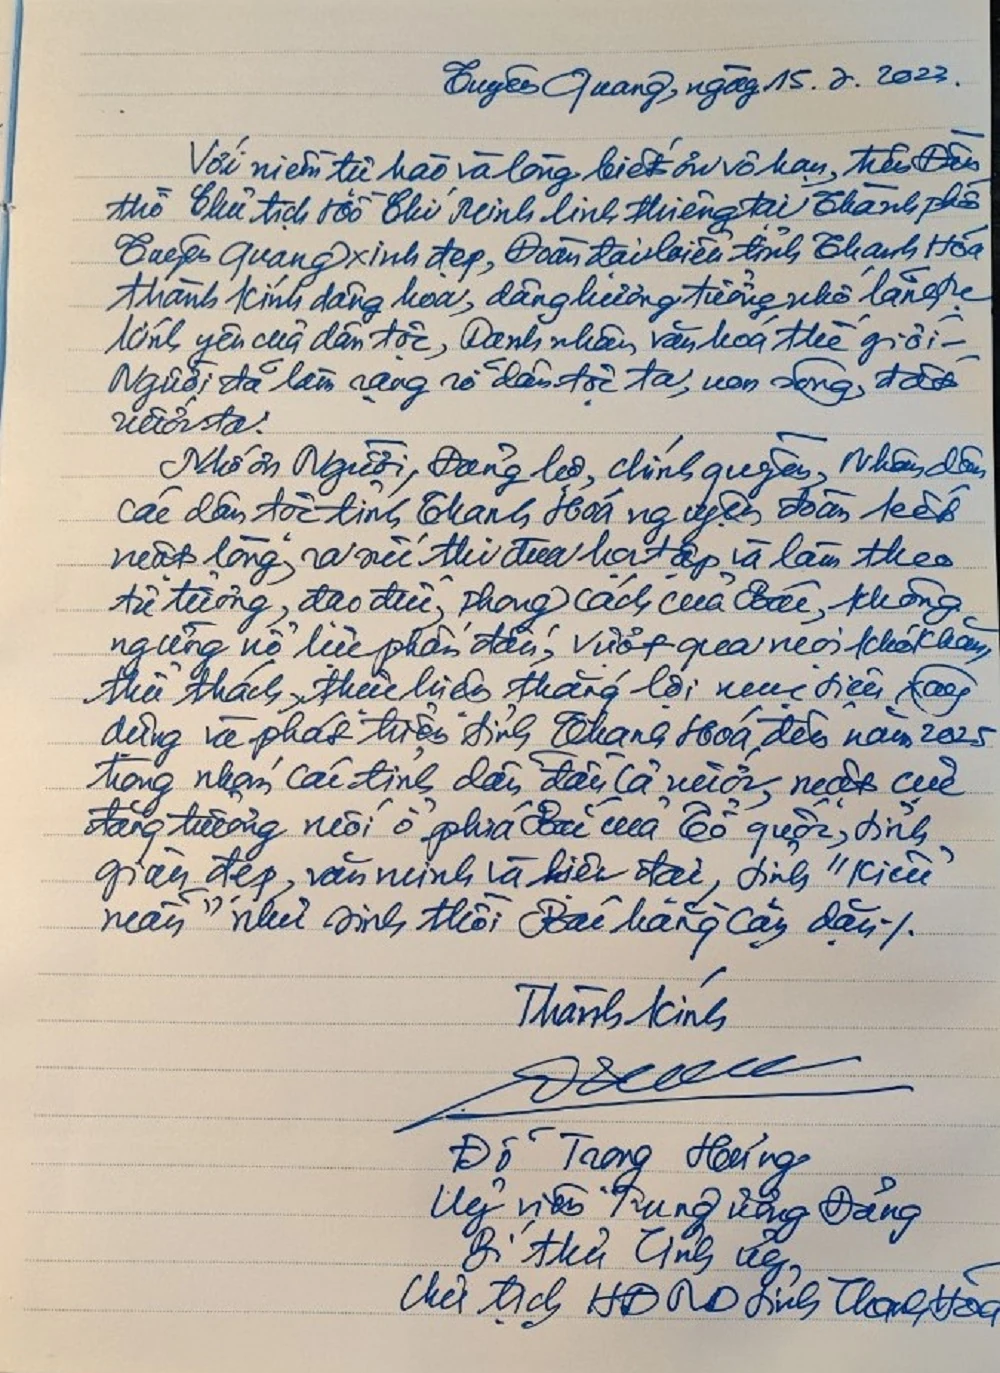 Tuyên Quang, ngày 15.2.2023.
Với niềm tự hào và lòng biết ơn vô hạn, trên Đền
thờ Chủ tịch Hồ Chí Minh linh thiêng tại Thành phố
Tuyên Quang xinh đẹp, Đoàn đại biểu tỉnh Thanh Hóa
thành kính dâng hoa, dâng hương tưởng nhớ lãnh tụ
kính yêu của dân tộc, Danh nhân văn hoá thế giới -
Người đã làm rạng rỡ dân tộc ta, non sông, đất
nước ta!
Nhớ ơn Người, Đảng bộ, chính quyền, Nhân dân
các dân tộc tỉnh Thanh Hoá nguyện đoàn kết
một lòng, ra sức thi đua học tập và làm theo
tư tưởng, đạo đức, phong cách của Bác, không
ngừng nỗ lực phấn đấu, vượt qua mọi khó khăn,
thử thách, thực hiện thắng lợi mục tiêu xây
dựng và phát triển tỉnh Thanh Hoá đến năm 2025
trong nhóm các tỉnh dẫn đầu cả nước, một cực
tăng trưởng mới ở phía Bắc của Tổ quốc, tỉnh
giàu đẹp, văn minh và hiện đại, tỉnh "Kiểu
mẫu" như sinh thời Bác hằng căn dặn./.
Thành kính
Đỗ Trọng Hưng
Uỷ viên Trung ương Đảng
Bí thư Tỉnh ủy,
Chủ tịch HĐND tỉnh Thanh Hóa